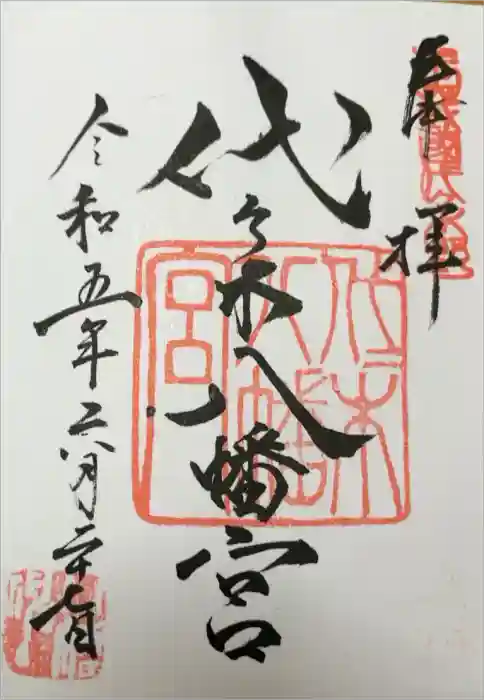 奉拝
代々木八幡宮
令和五年六月二十七日
代々木八幡宮